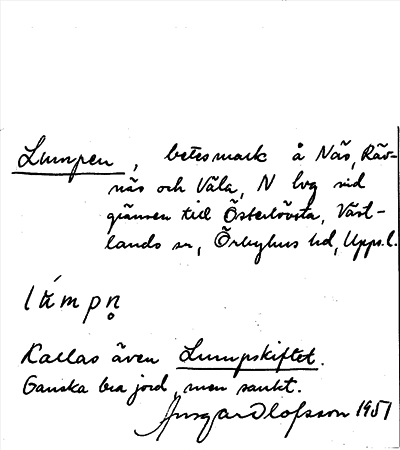 Lumpen, betesmark å Näs, Räv-
näs och Väla, N lvg vid
gränsen till Österlövsta, Väst-
lands sn, Örbyhus hd, Upps.l.
Kallas även Lumpskiftet.
Ganska bra jord, men sankt.
Ansgar Olofsson 1951